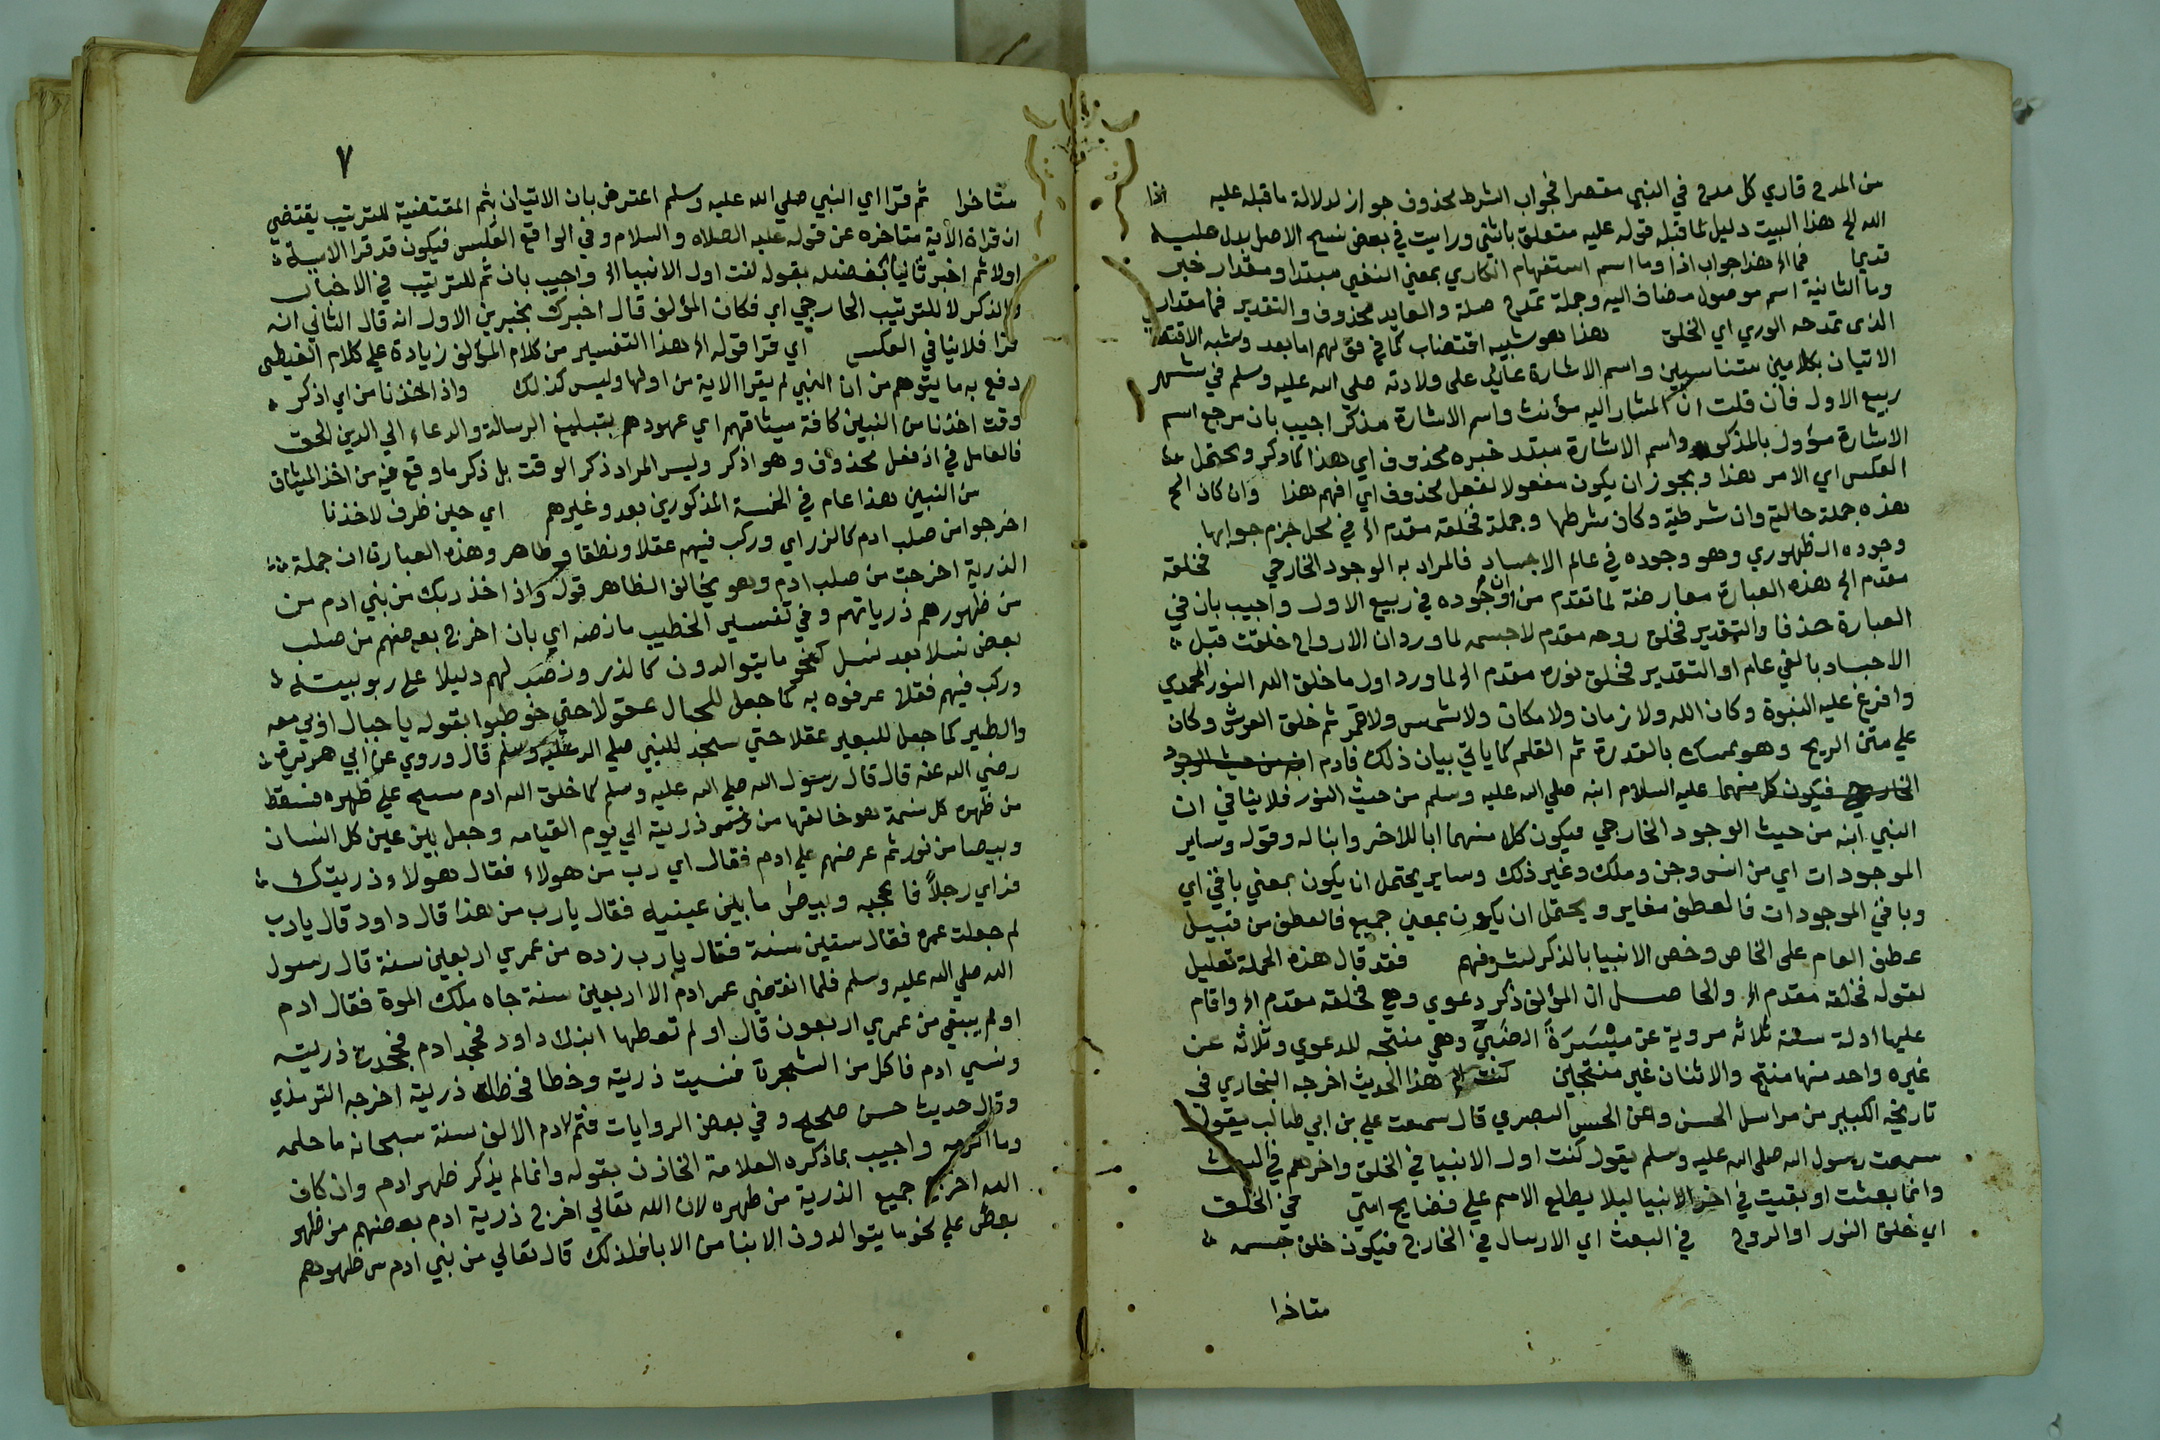 من المدح قاري كل مدح في النبي مقصرا فجواب الشرط محذوف جواز لدلالة ما قبله عليه اذا
الله الخ هذا البيت دليل لما قبله قوله عليه متعلق باثني ورايت في بعض نسخ الاصل بدل عليه
قديما فما الخ هذا جواب اذا وما اسم استفهام انكاري بمعني النفي مبتدا ومقدار خبر
وما الثانية اسم موصول مضاف اليه وجملة تمدح صلة والعايد محذوف والتقدير فما مقدار
الذي تمدحه الوري اي الخلق هذا هو شبيه اقتضاب كما في قولهم اما بعد وشبه الاقتضا
الاتيان بكلامين متناسبين واسم الاشارة عايد علي ولادته صلي الله عليه وسلم في شهر
ربيع الاول فان قلت ان المشار اليه مؤنث واسم الاشارة مذكر اجيب بان مرجع اسم
الاشارة مؤول بالمذكور واسم الاشارة مبتد خبره محذوف اي هذا كما ذكر ويحتمل
العكس اي الامر هذا ويجوز ان يكون مفعولا لفعل محذوف اي افهم هذا وان كان الخ
هذه جملة حالية وان شرطية وكان شرطها وجملة فخلقه مقدم الخ في محل جزم جوابها
وجوده الظهوري وهو وجوده في عالم الاجساد فالمراد به الوجود الخارجي فخلقه
مقدم الخ هذه العبارة معارضة لما تقدم من ان وجوده في ربيع الاول واجيب بان في
العبارة حذفا والتقدير فخلق روحه مقدم لا جسمه لما ورد ان الارواح خلقت قبل
الاجساد بالفي عام او التقدير فخلق نوره مقدم الخ لما ورد اول ما خلق الله النور المحمدي
وافرغ عليه النبوة وكان الله ولا زمان ولا مكان ولا شمس ولا قمر ثم خلق العرش وكان
علي متن الريح وهو يمسك بالقدرة ثم القلم كما ياتي بيان ذلك فادم ابنه من حيث الوجود
الخارجي فيكون كل منهما عليه السلام ابنه صلي الله عليه وسلم من حيث النور فلا ينافي ان
النبي ابنه من حيث الوجود الخارجي فيكون كل منهما ابا للاخر وابنا له وقوله وساير
الموجودات اي من انس وجن وملك وغير ذلك وساير يحتمل ان يكون بمعني باقي اي
وباقي الموجودات فالعطف مغاير ويحتمل ان يكون بمعني جميع فالعطف من قبيل
عطف العام علي الخاص وخص الانبيا بالذكر لشرفهم فقد قال هذه الجملة تعليل
لقوله فخلقه مقدم الخ والحاصل ان المؤلف ذكر دعوي وهي فخلقه مقدم الخ واقام
عليها ادلة ستة ثلاثه مروية عن ميسَرَةَ الضَبيّ وهي منتجه للدعوي وثلاثه عن
غيره واحد منها منتج والاثنان غير منتجين كنت الخ هذا الحديث اخرجه البخاري في
تاريخه الكبير من مراسل الحسن وعن الحسن البصري قال سمعت علي بن ابي طالب يقول
سمعت رسول الله صلي الله عليه وسلم يقول كنت اول الانبيا في الخلق واخرهم في البعث
وانما بعثت او بقيت في اخر الانبيا ليلا يطلع الامم علي فضايح امتي في الخلق
اي خلق النور او الروح في البعث اي الارسال في الخارج فيكون خلق جسمه
متاخرا
٧
متاخرا ثم قرا اي النبي صلي الله عليه وسلم اعترض بان الاتيان بثم المقتضية للترتيب يقتضي
ان قراة الاية متاخره عن قوله عليه الصلاه والسلام وفي الواقع العكس فيكون قد قرا الاية
اولا ثم اخبر ثانيا بفضله بقوله كنت اول الانبيا الخ واجيب بان ثم للترتيب في الاخبار
والذكر لا للترتيب الخارجي اي فكان المؤلف قال اخبرك بخبرين الاول انه قال الثاني انه
قرا فلا ينافي العكس اي قرا قوله الخ هذا التفسير من كلام المؤلف زيادة علي كلام الغيطي
دفع به ما يتوهم من ان النبي لم يقرا الاية من اولها وليس كذلك واذ اخذنا من اي اذكر
وقت اخذنا من النبين كافة ميثاقهم اي عهودهم بتبليغ الرسالة والدعاء الي الدين الحق
فالعامل في اذ فعل محذوف وهو اذكر وليس المراد ذكر الوقت بل ذكر ما وقع فيه من اخذ الميثاق
من النبين هذا عام في الخمسة المذكورين بعد وغيرهم اي حين ظرف لاخذنا
اخرجوا من صلب ادم كالذر اي وركب فيهم عقلا ونطقا وظاهر وهذه العبارة ان جملة
الذرية اخرجت من صلب ادم وهو يخالف الظاهر قوله واذ اخذ ربك من بني ادم من
من ظهورهم ذرياتهم وفي تفسير الخطيب ما نصه اي بان اخرج بعضهم من صلب
بعض نسلا بعد نسل كنحو ما يتوالدون كالذر ونصَبَ لهم دليلا علي ربوبيته
وركب فيهم فقلا عرفوه به كما جعل للجبال عقولا حتي خوطبوا بقوله يا جبال اوبي معه
والطير كما جعل للبعير عقلا حتي سجد للنبي صلي الله عليه وسلم قال وروي عن ابي هريرة
رضي الله عنه قال قال رسول الله صلي الله عليه وسلم لما خلق الله ادم مسح علي ظهره فسقط
من ظهره كل نسمة هو خالقها من ذريته الي يوم القيامه وجعل بين عين كل انسان
وبيصا من نور ثم عرضهم علي ادم فقال اي رب من هولاء فقال هولاء ذريتك
فراي رجلاً فاعجبه وبيص ما بين عينيه فقال يارب من هذا قال داود قال يارب
لم جعلت عمره فقال ستين سنة فقال يارب زده من عمري اربعين سنة قال رسول
الله صلي الله عليه وسلم فلما انقضي عمر ادم الا اربعين سنة جاه ملك الموة فقال ادم
اولم يبقي من عمري اربعون قال او لم تعطها ابنك داود فجحد ادم فجحدت ذريته
ونسي ادم فاكل من الشجرة فنسيت ذريته وخطا فخطات ذريته اخرجه الترمذي
وقال حديث حسن صحيح وفي بعض الروايات فتم لادم الالف سنة سبحانه ما حلمه
وما اكرمه واجيب بما ذكره العلامة الخازن بقوله وانما لم يذكر ظهر ادم وان كان
الله اخرج جميع الذرية من ظهره لان الله تعالي اخرج ذرية ادم بعضهم من ظهر
بعض علي نحو ما يتوالدون الابنا من الابا فلذلك قال تعالي من بني ادم من ظهورهم